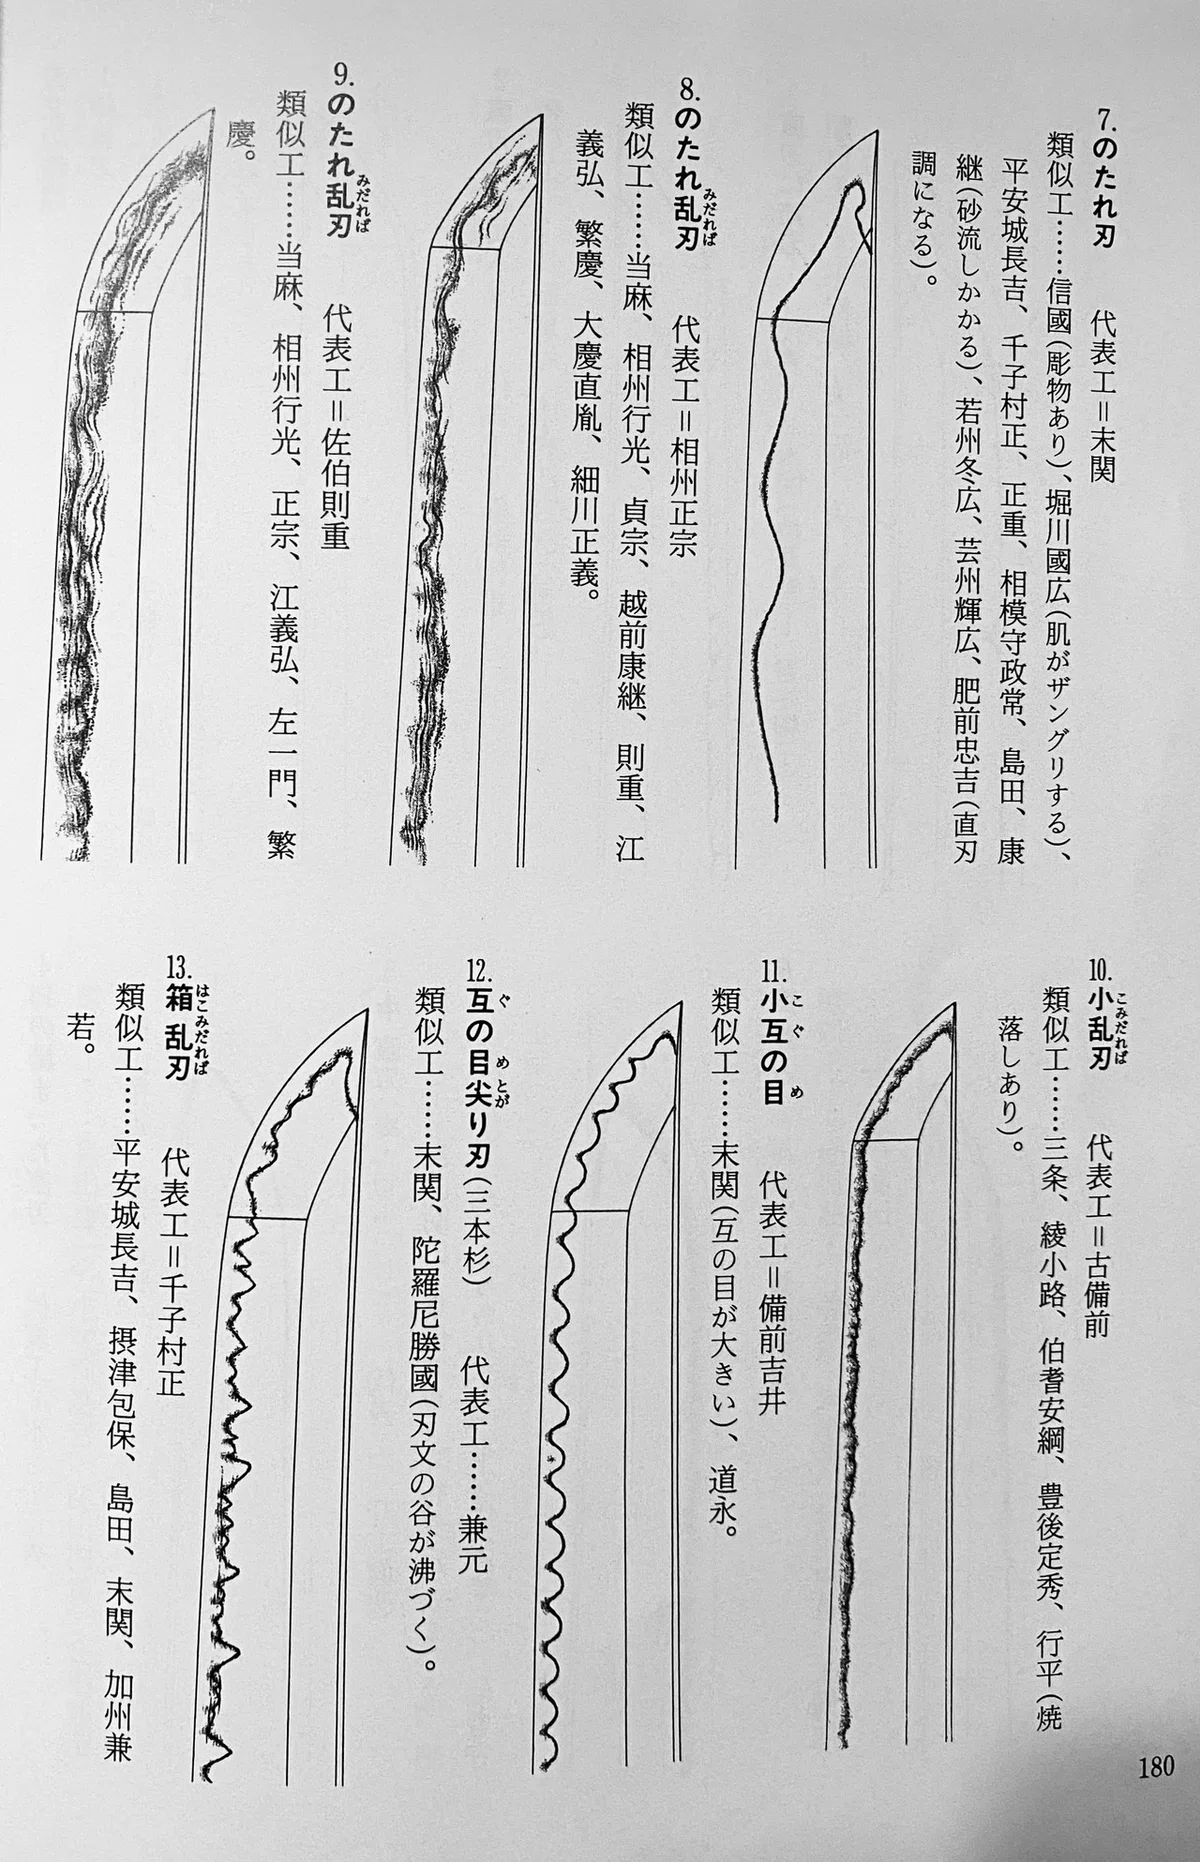 7.のたれ刃　代表工＝末関
類似工……信國(彫物あり)、堀川國広(肌がザングリする)、
平安城長吉、千子村正、正重、相模守政常、島田、康
継(砂流しかかる)、若州冬広、芸州輝広、肥前忠吉(直刃
調になる)。
8.のたれ乱刃　代表工＝相州正宗
みだれば
類似工……当麻、相州行光、貞宗、越前康継、則重、江
義弘、繁慶、大慶直胤、細川正義。
9.のたれ乱刃　代表工＝佐伯則重
みだれば
類似工……当麻、相州行光、正宗、江義弘、左一門、繁
慶。
10.小乱刃　代表工＝古備前
こみだれば
類似工……三条、綾小路、伯耆安綱、豊後定秀、行平(焼
落しあり)。
11.小互の目　代表工＝備前吉井
こぐめ
類似工……末関(互の目が大きい)、道永。
12.互の目尖り刃(三本杉)　代表工……兼元
ぐめとが
類似工……末関、陀羅尼勝國(刃文の谷が沸づく)。
13.箱乱刃　代表工＝千子村正
はこみだれば
類似工……平安城長吉、摂津包保、島田、末関、加州兼
若。
180